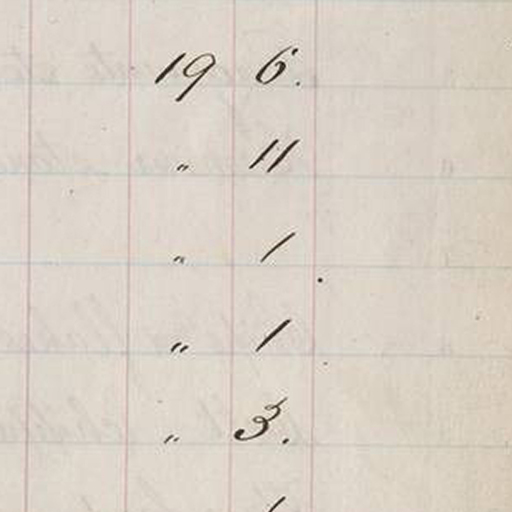 19 6.
" 11
" 1
" 1
" 3.